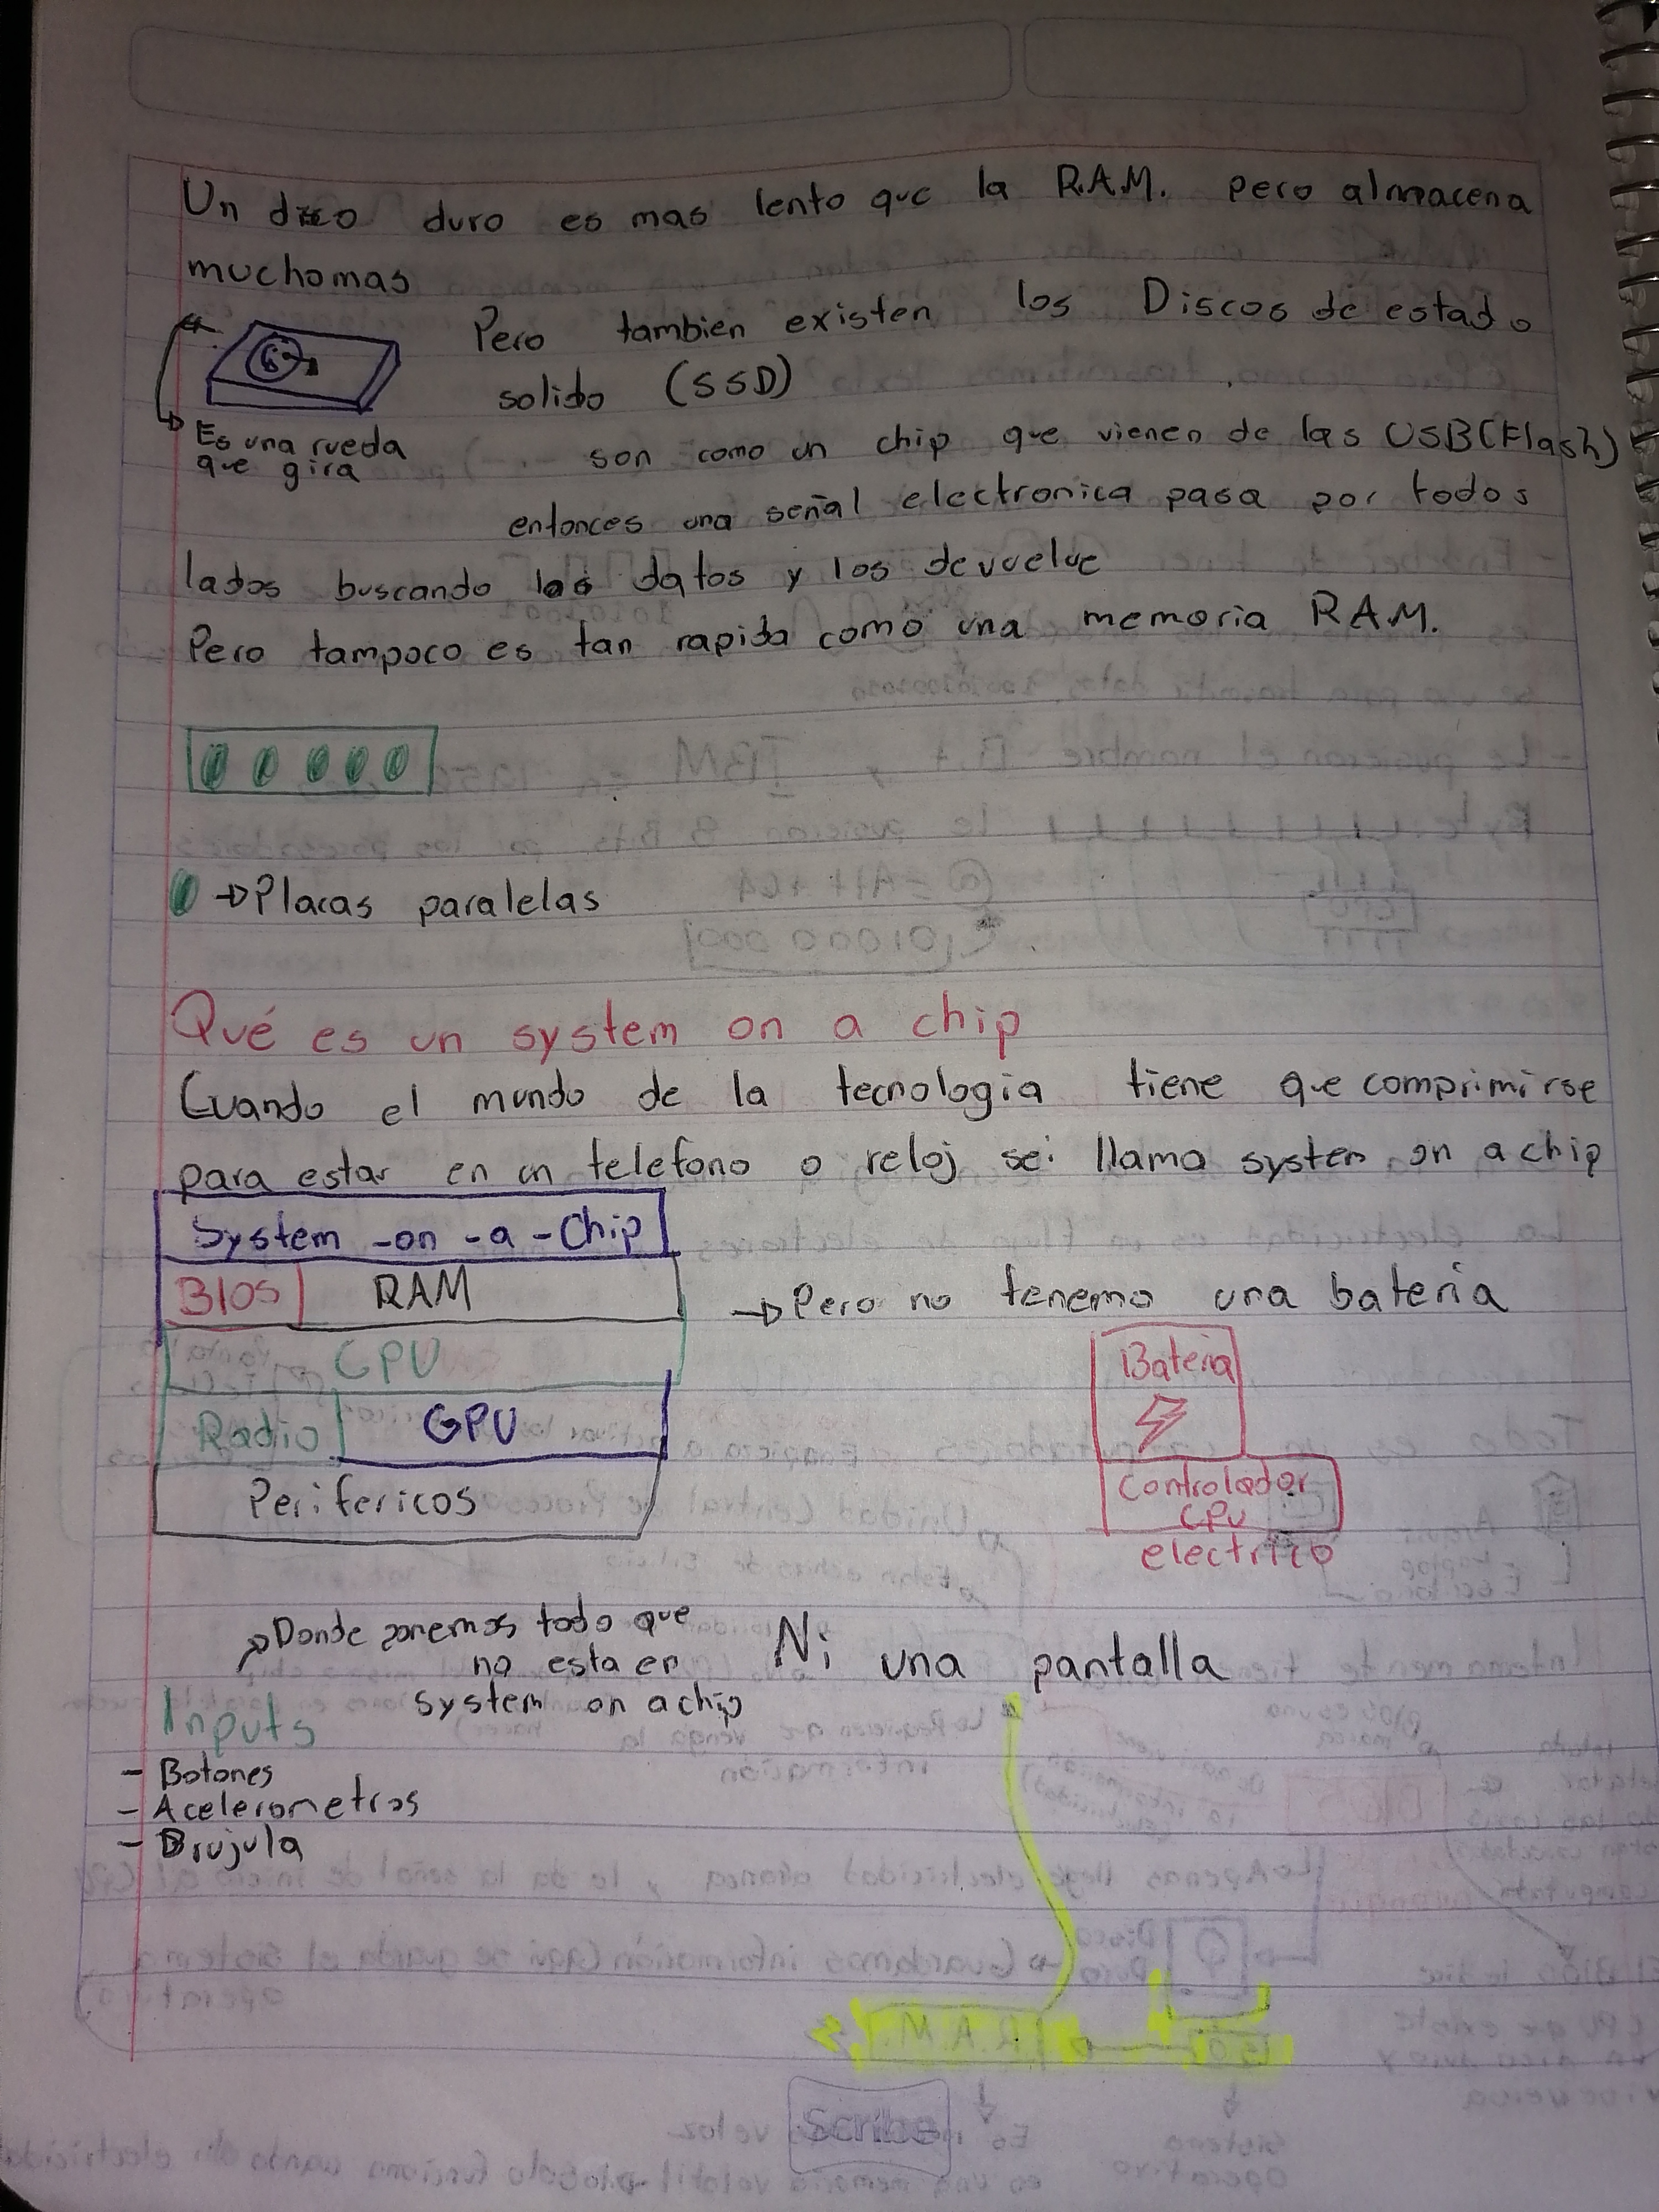 Un disco duro es mas lento que la R.A.M. pero almacena
muchomas
Pero tambien existen los Discos de estado
solido (SSD)
Es una rueda
que gira
son como un chip que vienen de las USB(Flash)
entonces una señal electronica pasa por todos
lados buscando los datos y los devuelve
Pero tampoco es tan rapida como una memoria RAM.
Placas paralelas
Qué es un system on a chip
Cuando el mundo de la tecnologia tiene que comprimirse
para estar en un telefono o reloj se llama system on a chip
System -on -a -Chip
BIOS RAM
Pero no tenemo una bateria
CPU
Radio GPU
Perifericos
Bateria
Controlador
CPU
electrico
Donde ponemos todo que
no esta en
system on a chip
Ni una pantalla
Inputs
- Botones
- Acelerometros
- Brujula
Scribe